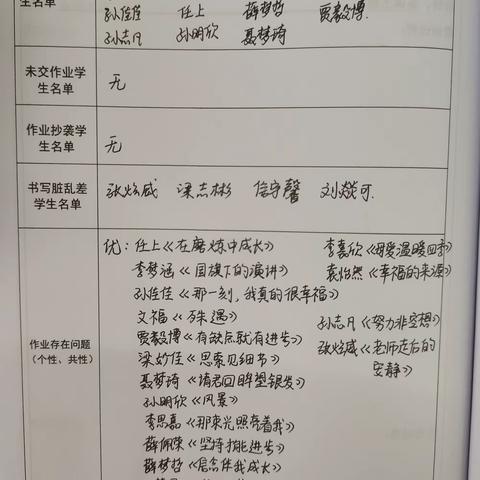 生名单
孙佳佳 任上 薛梦哲 贾毅博
孙志凡 孙明欣 聂梦琦
未交作业学生名单
无
作业抄袭学生名单
无
书写脏乱差学生名单
张炫威 梁志彬 信守馨 刘燚可
作业存在问题
（个性、共性）
优：任上《在磨炼中成长》 李嘉欣《母爱温暖四季》
李梦涵《国旗下的演讲》 袁怡然《幸福的来源》
孙佳佳《那一刻，我真的很幸福》
文福《殊遇》 孙志凡《努力非空想》
贾毅博《有缺点就有进步》 张炫威《老师走后的安静》
梁妙佳《思索见细书》
聂梦琦《请君回眸望银发》
孙明欣《风景》
李思嘉《那束光照亮着我》
薛佩荣《坚持才能进步》
薛梦哲《信念伴我成长》